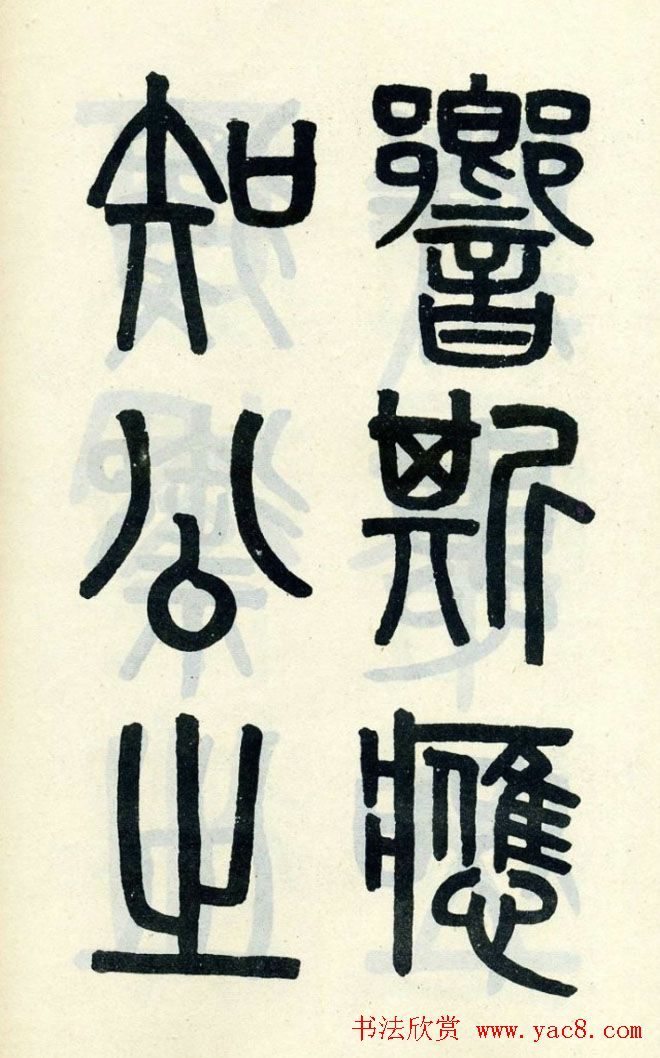 響斯應
知公之
书法欣赏 www.yac8.com